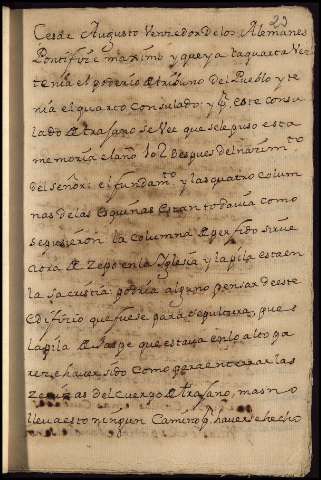 23
Cesar Augusto Vencedor de los Alemanes
Pontifice maximo y que ya la quarta Vez
tenia el poderio de tribuno del Pueblo y te
nia el quarto consulado; y q̃ este consu
lado de trajano se Vee que se le puso esta
memoria el año 102 despues del naçimto
del señor: el fundamto y las quatro colum
nas de las esquinas estan todavia como
se pusieron la columna de perfido sirue
aora de Zepo en la yglesia y la pila esta en
la sacristia: podria alguno pensar de este
edifiçio que fuese para sepultura, pues
la pila de Jaspe que estaua en lo alto pa
reze haver sido como para enterrar las
Zenizas del cuerpo de trajano, mas no
lleva esto ningun camino q̃ haverse hecho